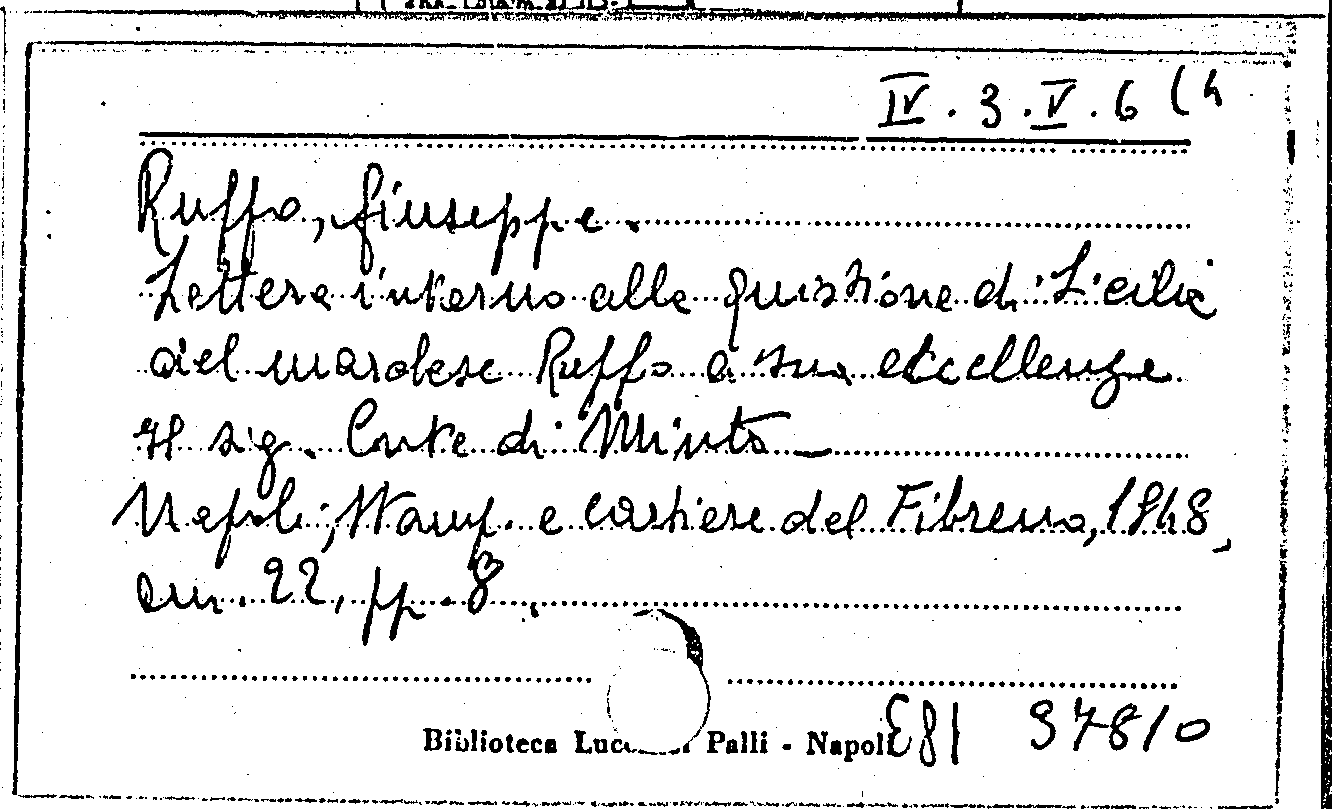 IV . 3 . V . 6 (4
Ruffo, Giuseppe.
Lettera intorno alla quistione di Sicilia
del marchese Ruffo a sua eccellenza
il sig. Conte di Minto _
Napoli, Stamp. e cartiere del Fibreno, 1848,
cm. 22, pp. 8.
Biblioteca Palli - Napoli
E81 97810